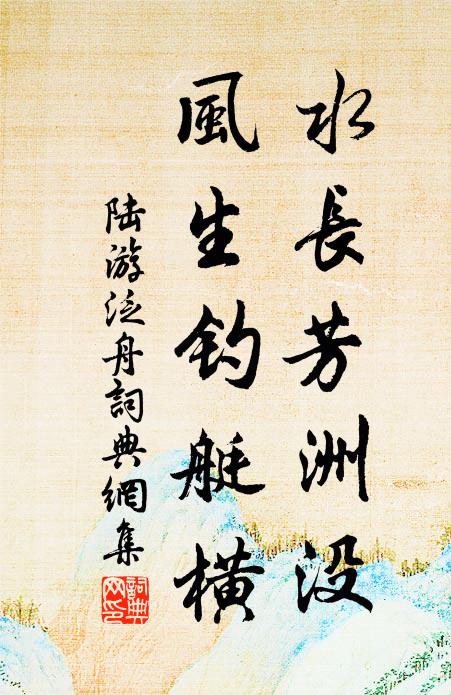 水長芳洲没
風生釣艇橫
陆游泛舟詞典網集
詞典